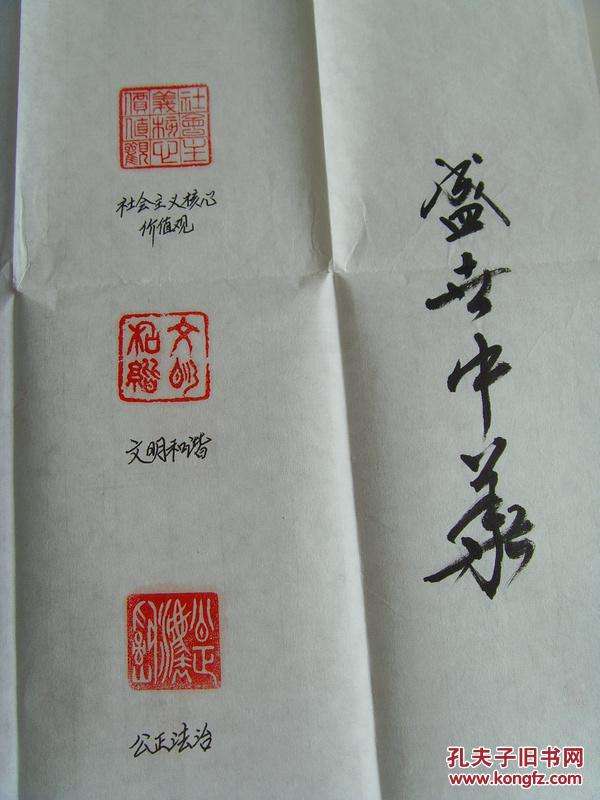 盛世中華
社會主
義核心
價值觀
社会主义核心
价值观
文明
和諧
文明和谐
公正
公正法治
孔夫子旧书网
www.kongfz.com